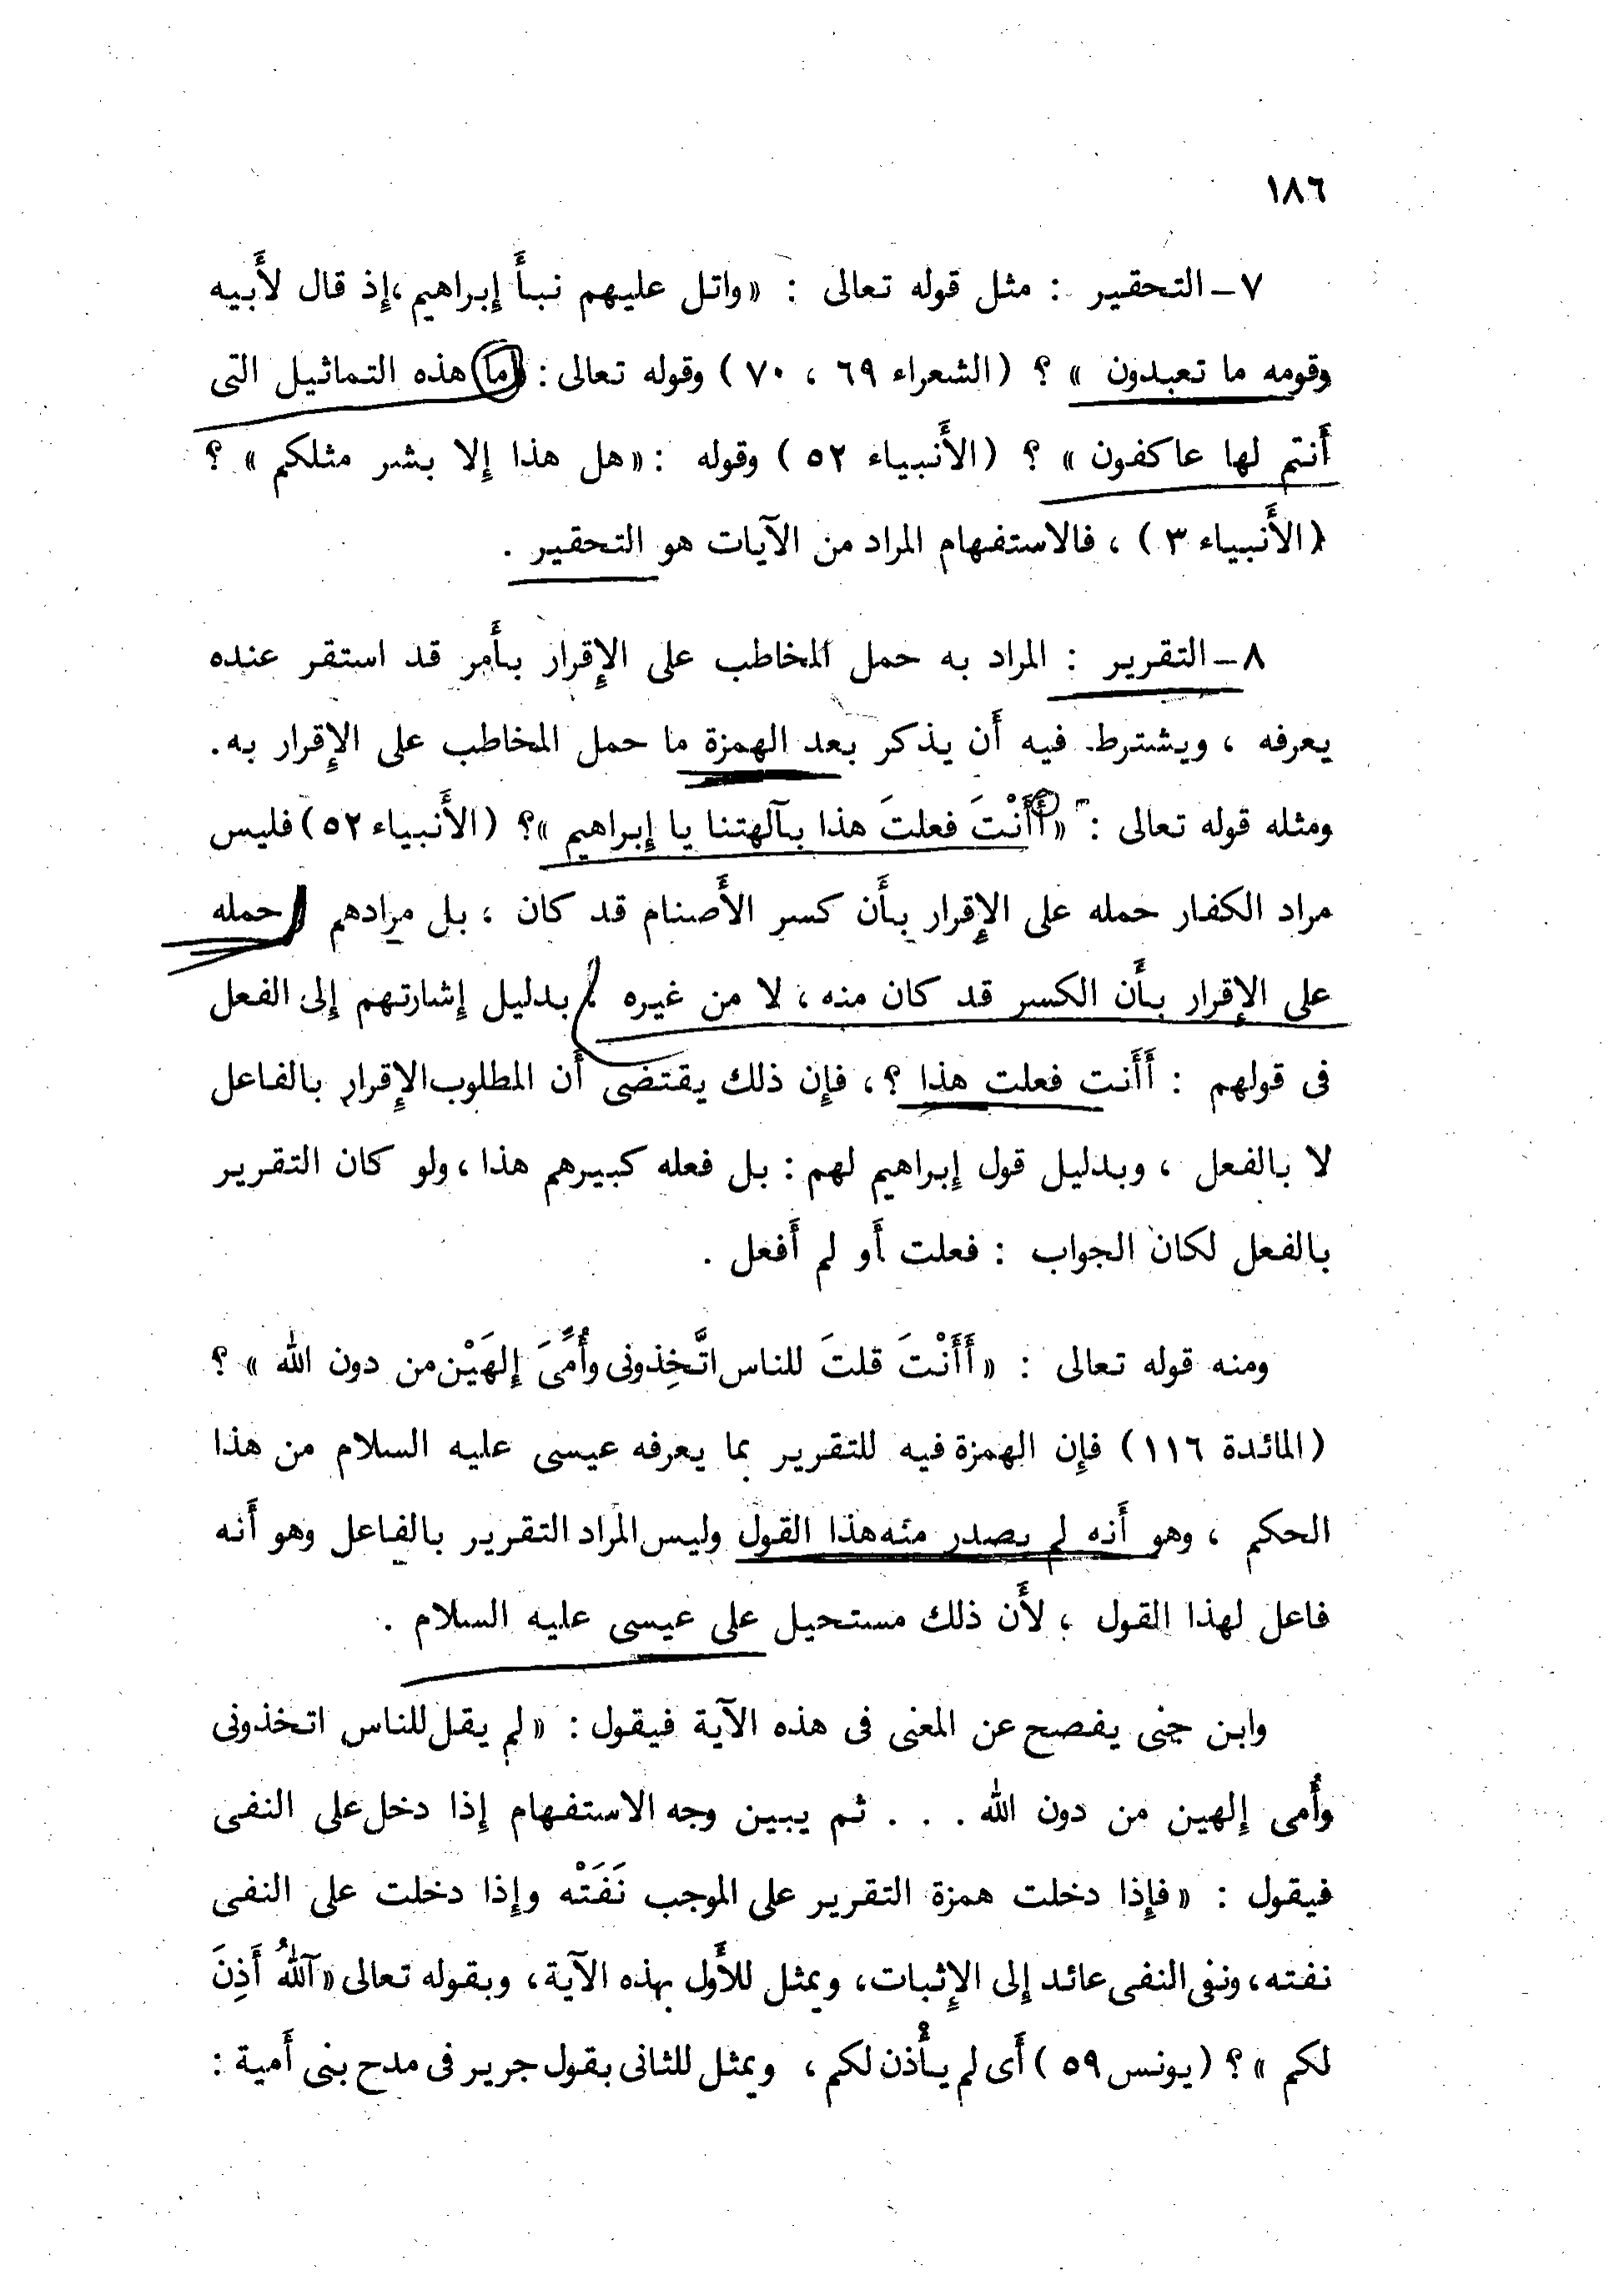 ١٨٦
٧ـ التحقير : مثل قوله تعالى : « واتل عليهم نبأَ إبراهيم ، إذ قال لأَبيه
وقومه ما تعبدون » ؟ (الشعراء ٦٩ ، ٧٠ ) وقوله تعالى : «ما هذه التماثيل التى
أَنتم لها عاكفون » ؟ (الأَنبياء ٥٢ ) وقوله : «هل هذا إلا بشر مثلكم » ؟
(الأَنبياء ٣ ) ، فالاستفهام المراد من الآيات هو التحقير .
٨ـ التقرير : المراد به حمل المخاطب على الإِقرار بأَمر قد استقر عنده
يعرفه ، ويشترط فيه أَن يذكر بعد الهمزة ما حمل المخاطب على الإِقرار به .
ومثله قوله تعالى : « أَأَنْتَ فعلتَ هذا بآلهتنا يا إبراهيم »؟ (الأَنبياء ٥٢ ) فليس
مراد الكفار حمله على الإِقرار بأَن كسر الأَصنام قد كان ، بل مرادهم حمله
على الإِقرار بأَن الكسر قد كان منه ، لا من غيره ، بدليل إشارتهم إلى الفعل
فى قولهم : أَأَنت فعلت هذا ؟ ، فإن ذلك يقتضى أَن المطلوب الإِقرار بالفاعل
لا بالفعل ، وبدليل قول إبراهيم لهم : بل فعله كبيرهم هذا ، ولو كان التقرير
بالفعل لكان الجواب : فعلت أَو لم أَفعل .
ومنه قوله تعالى : « أَأَنْتَ قلتَ للناس اتَّخِذونى وأُمِّىَ إلهَيْن من دون الله » ؟
(المائدة ١١٦ ) فإن الهمزة فيه للتقرير بما يعرفه عيسى عليه السلام من هذا
الحكم ، وهو أَنه لم يصدر منه هذا القول وليس المراد التقرير بالفاعل وهو أَنه
فاعل لهذا القول ، لأَن ذلك مستحيل على عيسى عليه السلام .
وابن جنى يفصح عن المعنى فى هذه الآية فيقول : « لم يقل للناس اتخذونى
وأُمى إلهين من دون الله . . . ثم يبين وجه الاستفهام إذا دخل على النفى
فيقول : « فإذا دخلت همزة التقرير على الموجب نَفَتْه وإذا دخلت على النفى
نفته ، ونفى النفى عائد إلى الإِثبات ، ويمثل للأَول بهذه الآية ، وبقوله تعالى « آللهُ أَذِنَ
لكم » ؟ (يونس ٥٩ ) أَى لم يأْذن لكم ، ويمثل للثانى بقول جرير فى مدح بنى أَمية :